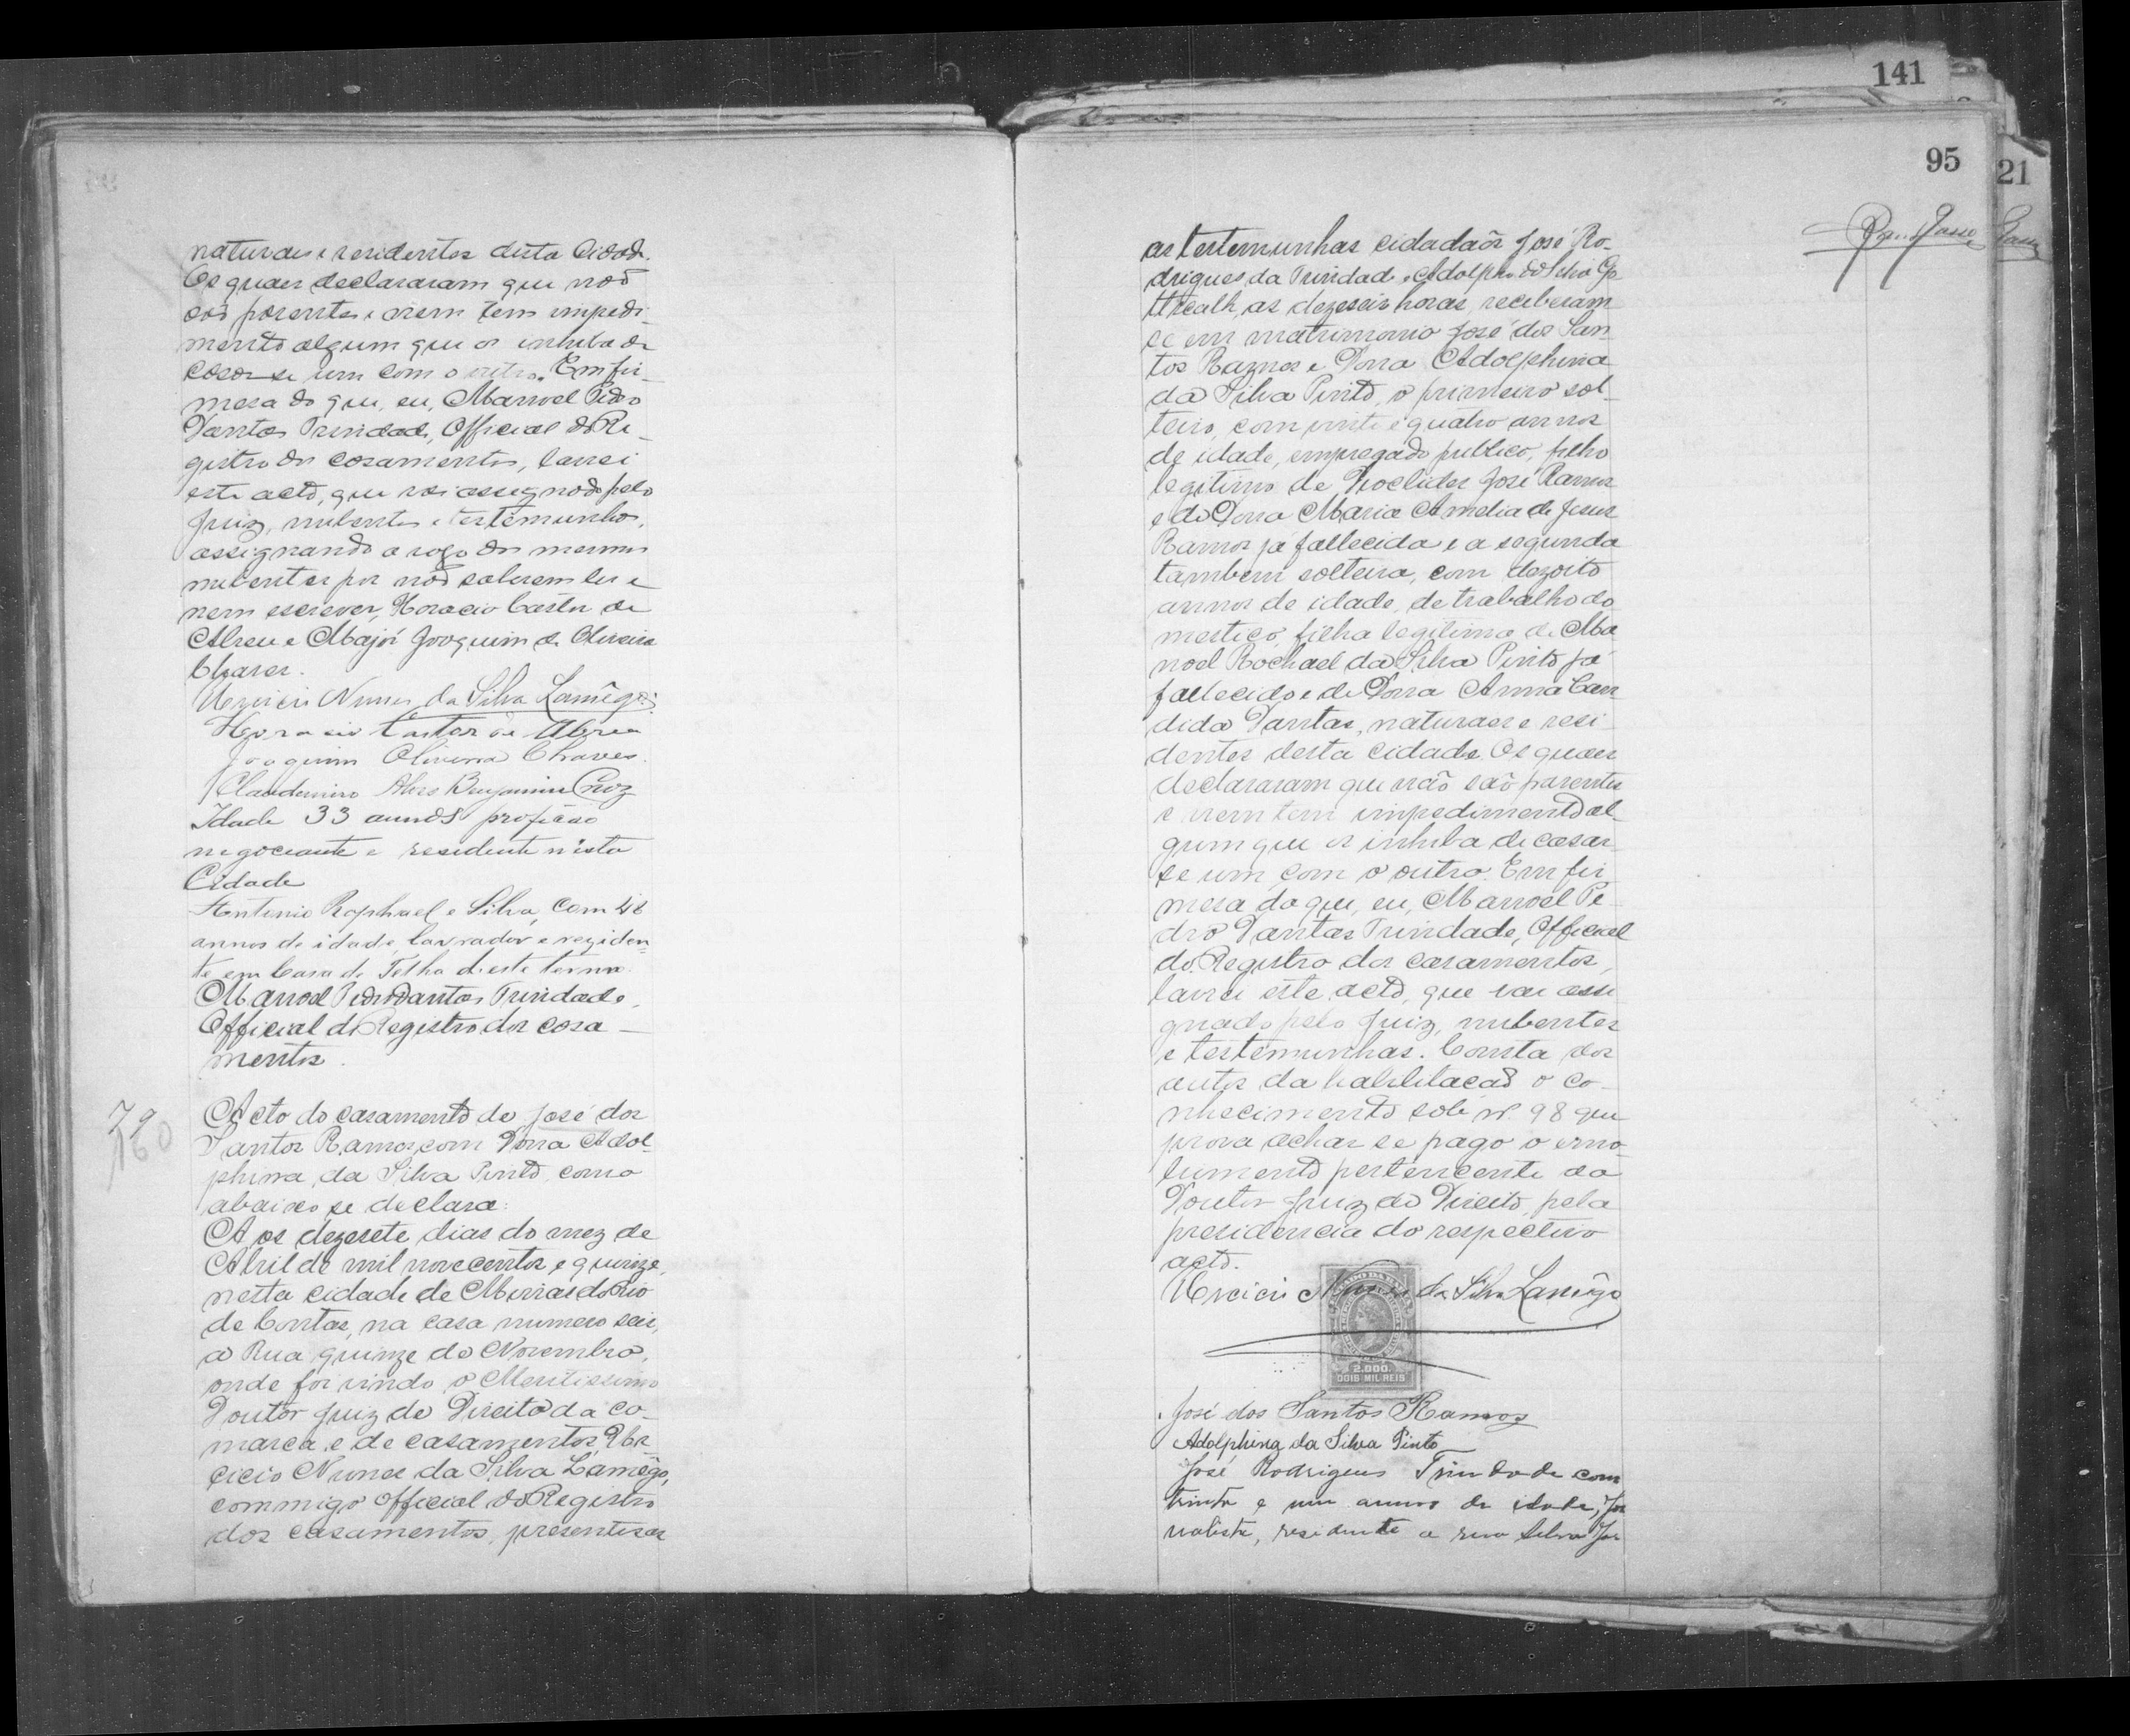 naturaes e residentes desta Cidade.
Os quaes declararam que não
são parentes e nem tem impedi-
mento algum que os inhiba de
casar-se um com o outro. Em fir-
mesa do que, eu, Manoel Pedro
Dantas Trindade, Official do Re-
gistro dos casamentos, lavrei
este acto, que vai assignado pelo
Juiz, nubentes e testemunhas,
assignando a rogo dos mesmos
nubentes por não saberem ler e
nem escrever, Horacio Castor de
Abreu e Major Joaquim de Oliveira
Chaves.
Nunes da Silva Lamêgo.
Horacio Castor de Abreu
Joaquim Oliveira Chaves.
Claudemiro Alves Benjamin Cruz
Idade 33 annos profição
negociante e residente nesta
Cidade
Antonio Raphael e Silva, com 48
annos de idade, lavrador e reziden-
te em Casa de Telha deste termo.
Manoel Pedro Dantas Trindade,
Official do Registro dos casa-
mentos.
79
160
Acto do casamento de José dos
Santos Ramos com Dona Adol-
phina da Silva Pinto, como
abaixo se declara:
Aos dezesete dias do mez de
Abril de mil novecentos e quinze,
nesta cidade de Minas do Rio
de Contas, na casa numero seis,
a Rua quinze de Novembro,
onde foi vindo o Meritissimo
Doutor Juiz de Direito da co-
marca e de casamentos,
cicio Nunes da Silva Lamêgo,
commigo official do Registro
dos casamentos, presentes as
141
95
21
as testemunhas cidadãos José Ro-
drigues da Trindade e Adolpho da Silva
as dezeseis horas, receberam
se em matrimonio José dos San-
tos Ramos e Dona Adolphina
da Silva Pinto, o primeiro sol-
teiro, com vinte e quatro annos
de idade, empregado publico, filho
legitimo de José Ramos
e de Dona Maria Amelia de Jesus
Ramos já fallecida e a segunda
tambem solteira, com dezoito
annos de idade, de trabalho do
mestico, filha legitima de Ma
noel Rochael da Silva Pinto já
fallecido e de Dona Anna Can
dida Dantas, naturaes e resi
dentes desta cidade. Os quaes
declararam que não são parentes
e nem tem impedimento al-
gum que os inhiba de casar
se um com o outro. Em fir
mesa do que, eu, Manoel Pe-
dro Dantas Trindade, Official
do Registro dos casamentos,
lavrei este acto, que vai assi
gnado pelo Juiz, nubentes
e testemunhas. Consta dos
autos da habilitação o co-
nhecimento sob nº. 98 que
prova achar se pago o emo-
lumento pertencente ao
Doutor Juiz de Direito, pela
presidencia do respectivo
acto.
da Silva Lamêgo
2.000
DOIS MIL REIS
José dos Santos Ramos
Adolphina da Silva Pinto
José Rodrigues Trindade com
trinta e um annos de idade, Jor
nalista, residente a rua Silva Jar